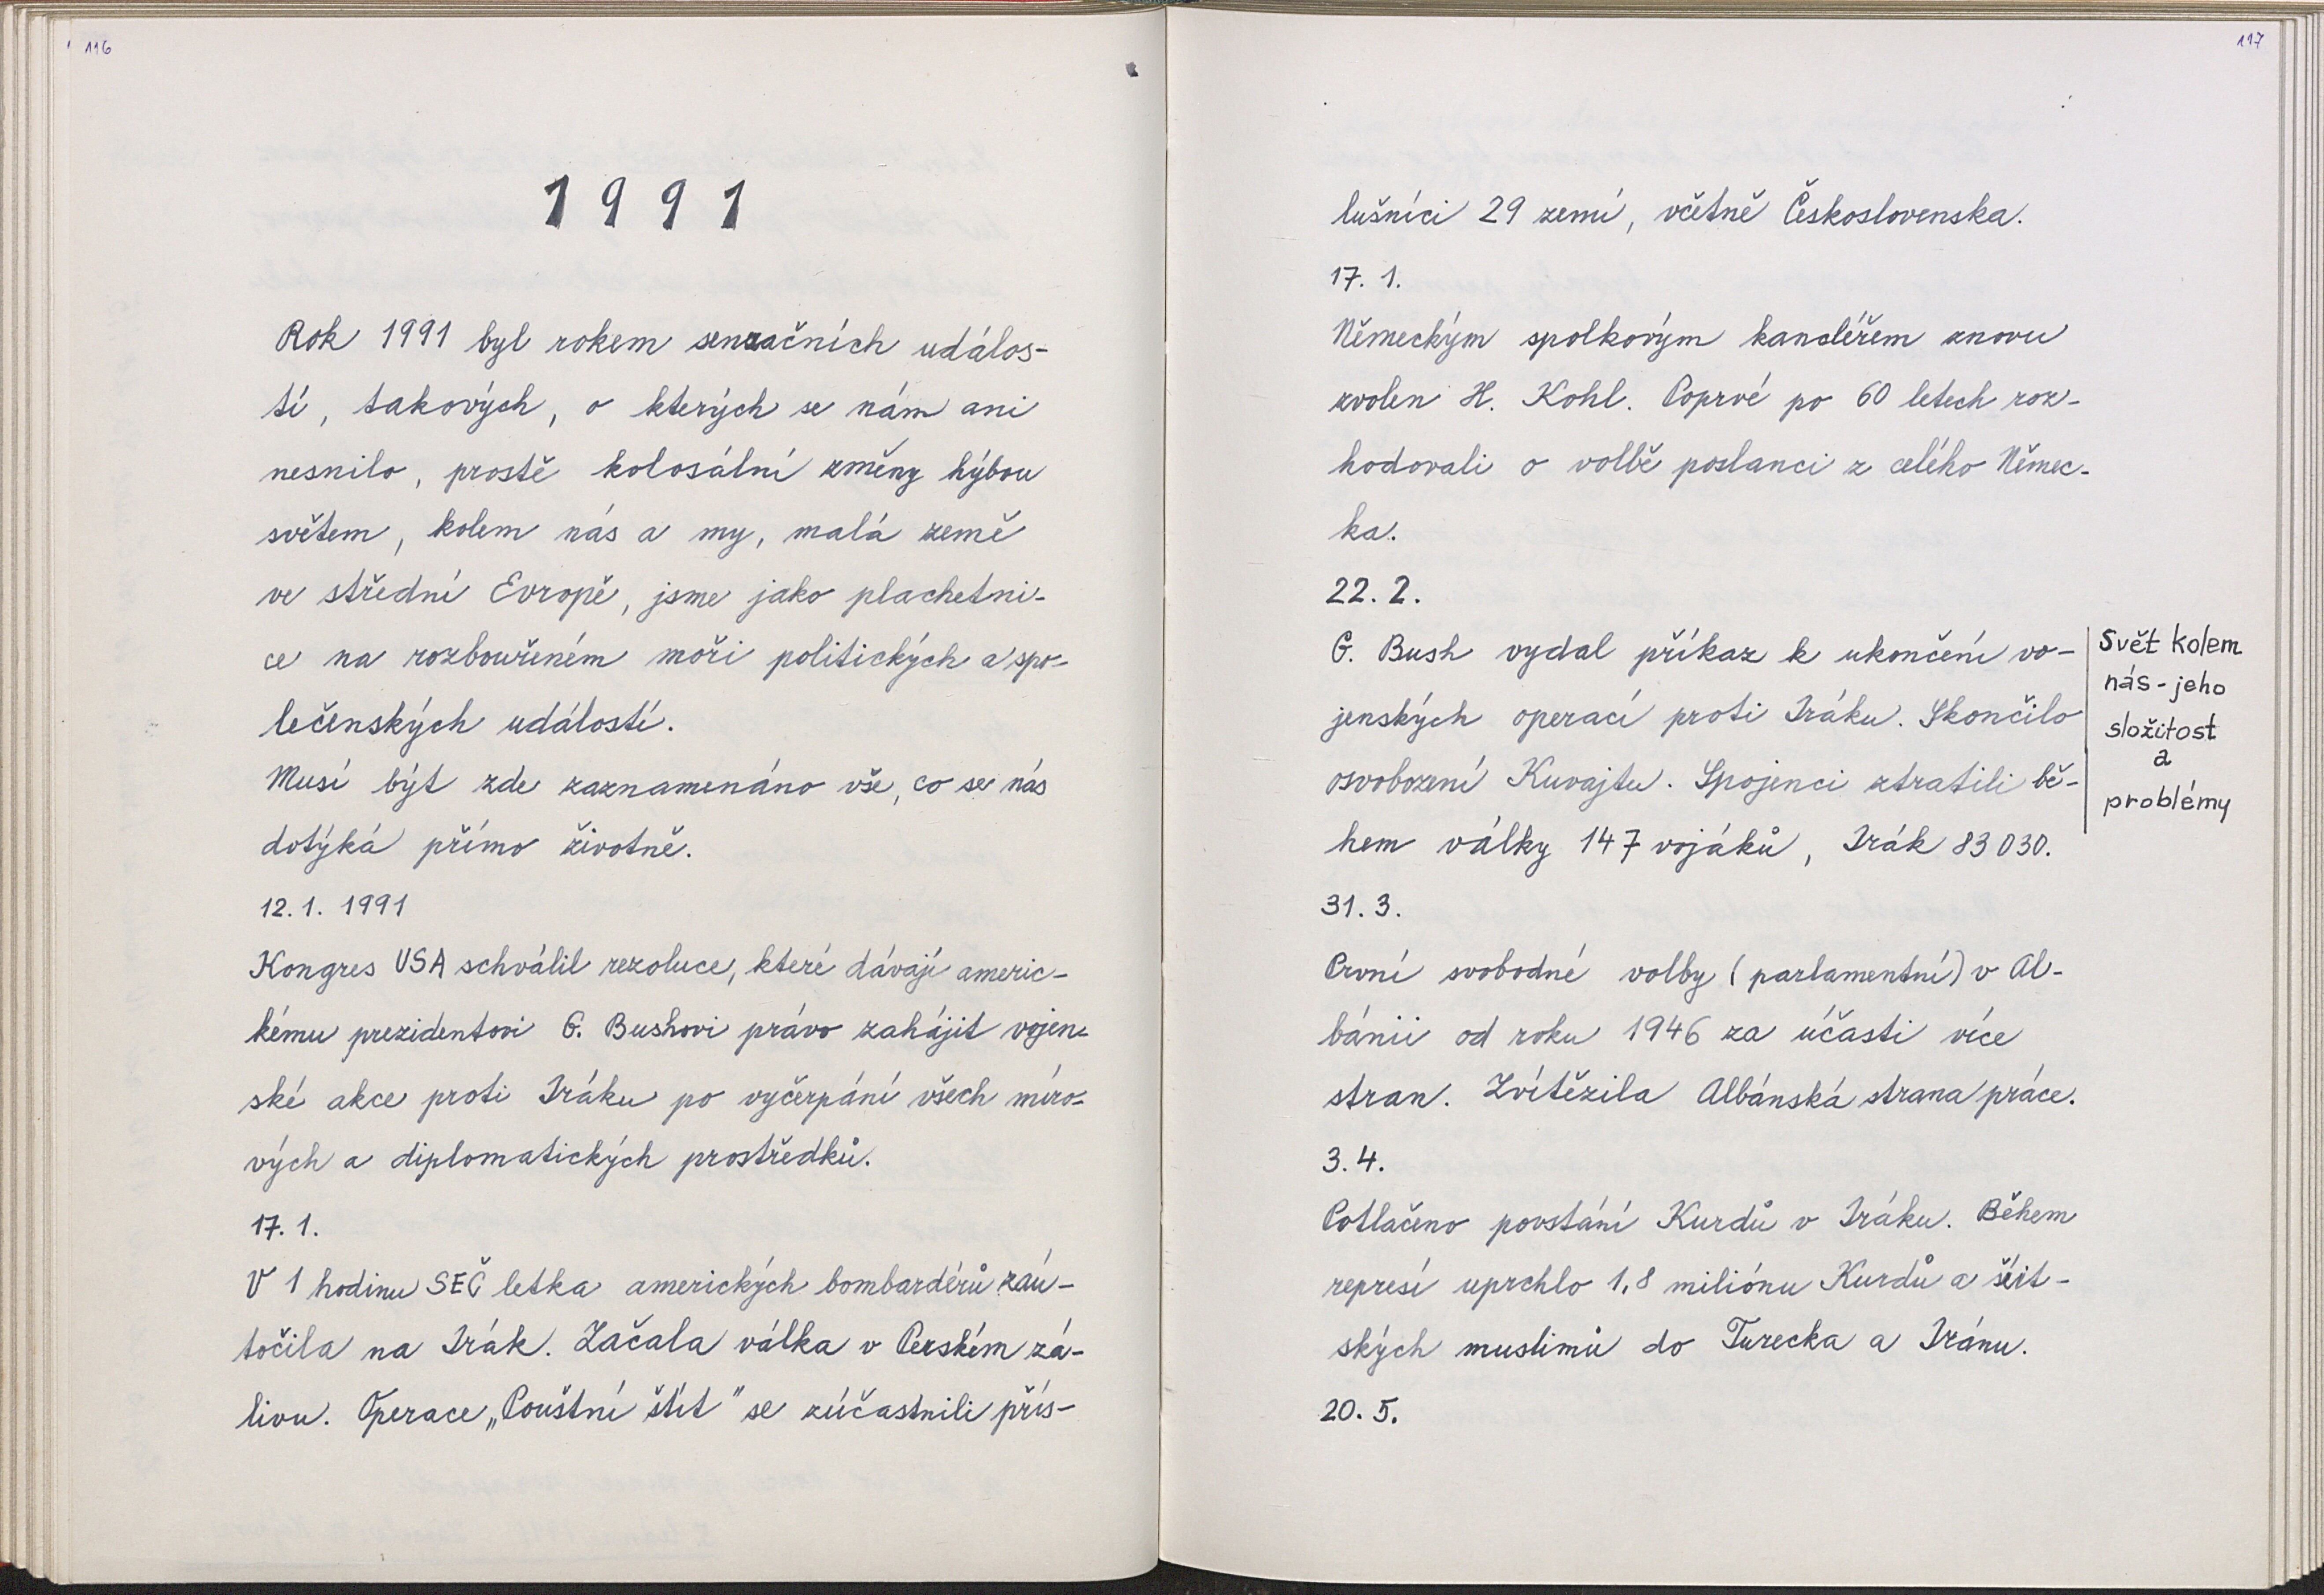 116
1991
Rok 1991 byl rokem senzačních událos-
tí, takových, o kterých se nám ani
nesnilo, prostě kolosální změny hýbou
světem, kolem nás a my, malá země
ve střední Evropě, jsme jako plachetni-
ce na rozbouřeném moři politických a spo-
lečenských událostí.
Musí být zde zaznamenáno vše, co se nás
dotýká přímo životně.
12. 1. 1991
Kongres USA schválil rezoluce, které dávají americ-
kému prezidentovi G. Bushovi právo zahájit vojen-
ské akce proti Iráku po vyčerpání všech míro-
vých a diplomatických prostředků.
17. 1.
V 1 hodinu SEČ letka amerických bombardérů zaú-
točila na Irák. Začala válka v Perském zá-
livu. Operace „Pouštní štít" se zúčastnili přís-
117
lušníci 29 zemí, včetně Československa.
17. 1.
Německým spolkovým kancléřem znovu
zvolen H. Kohl. Poprvé po 60 letech roz-
hodovali o volbě poslanci z celého Němec-
ka.
22. 2.
G. Bush vydal příkaz k ukončení vo-
jenských operací proti Iráku. Skončilo
osvobození Kuvajtu. Spojenci ztratili bě-
hem války 147 vojáků, Irák 83 030.
Svět kolem
nás - jeho
složitost
a
problémy
31. 3.
První svobodné volby (parlamentní) v Al-
bánii od roku 1946 za účasti více
stran. Zvítězila Albánská strana práce.
3. 4.
Potlačeno povstání Kurdů v Iráku. Během
represí uprchlo 1,8 miliónu Kurdů a šíit-
ských muslimů do Turecka a Iránu.
20. 5.